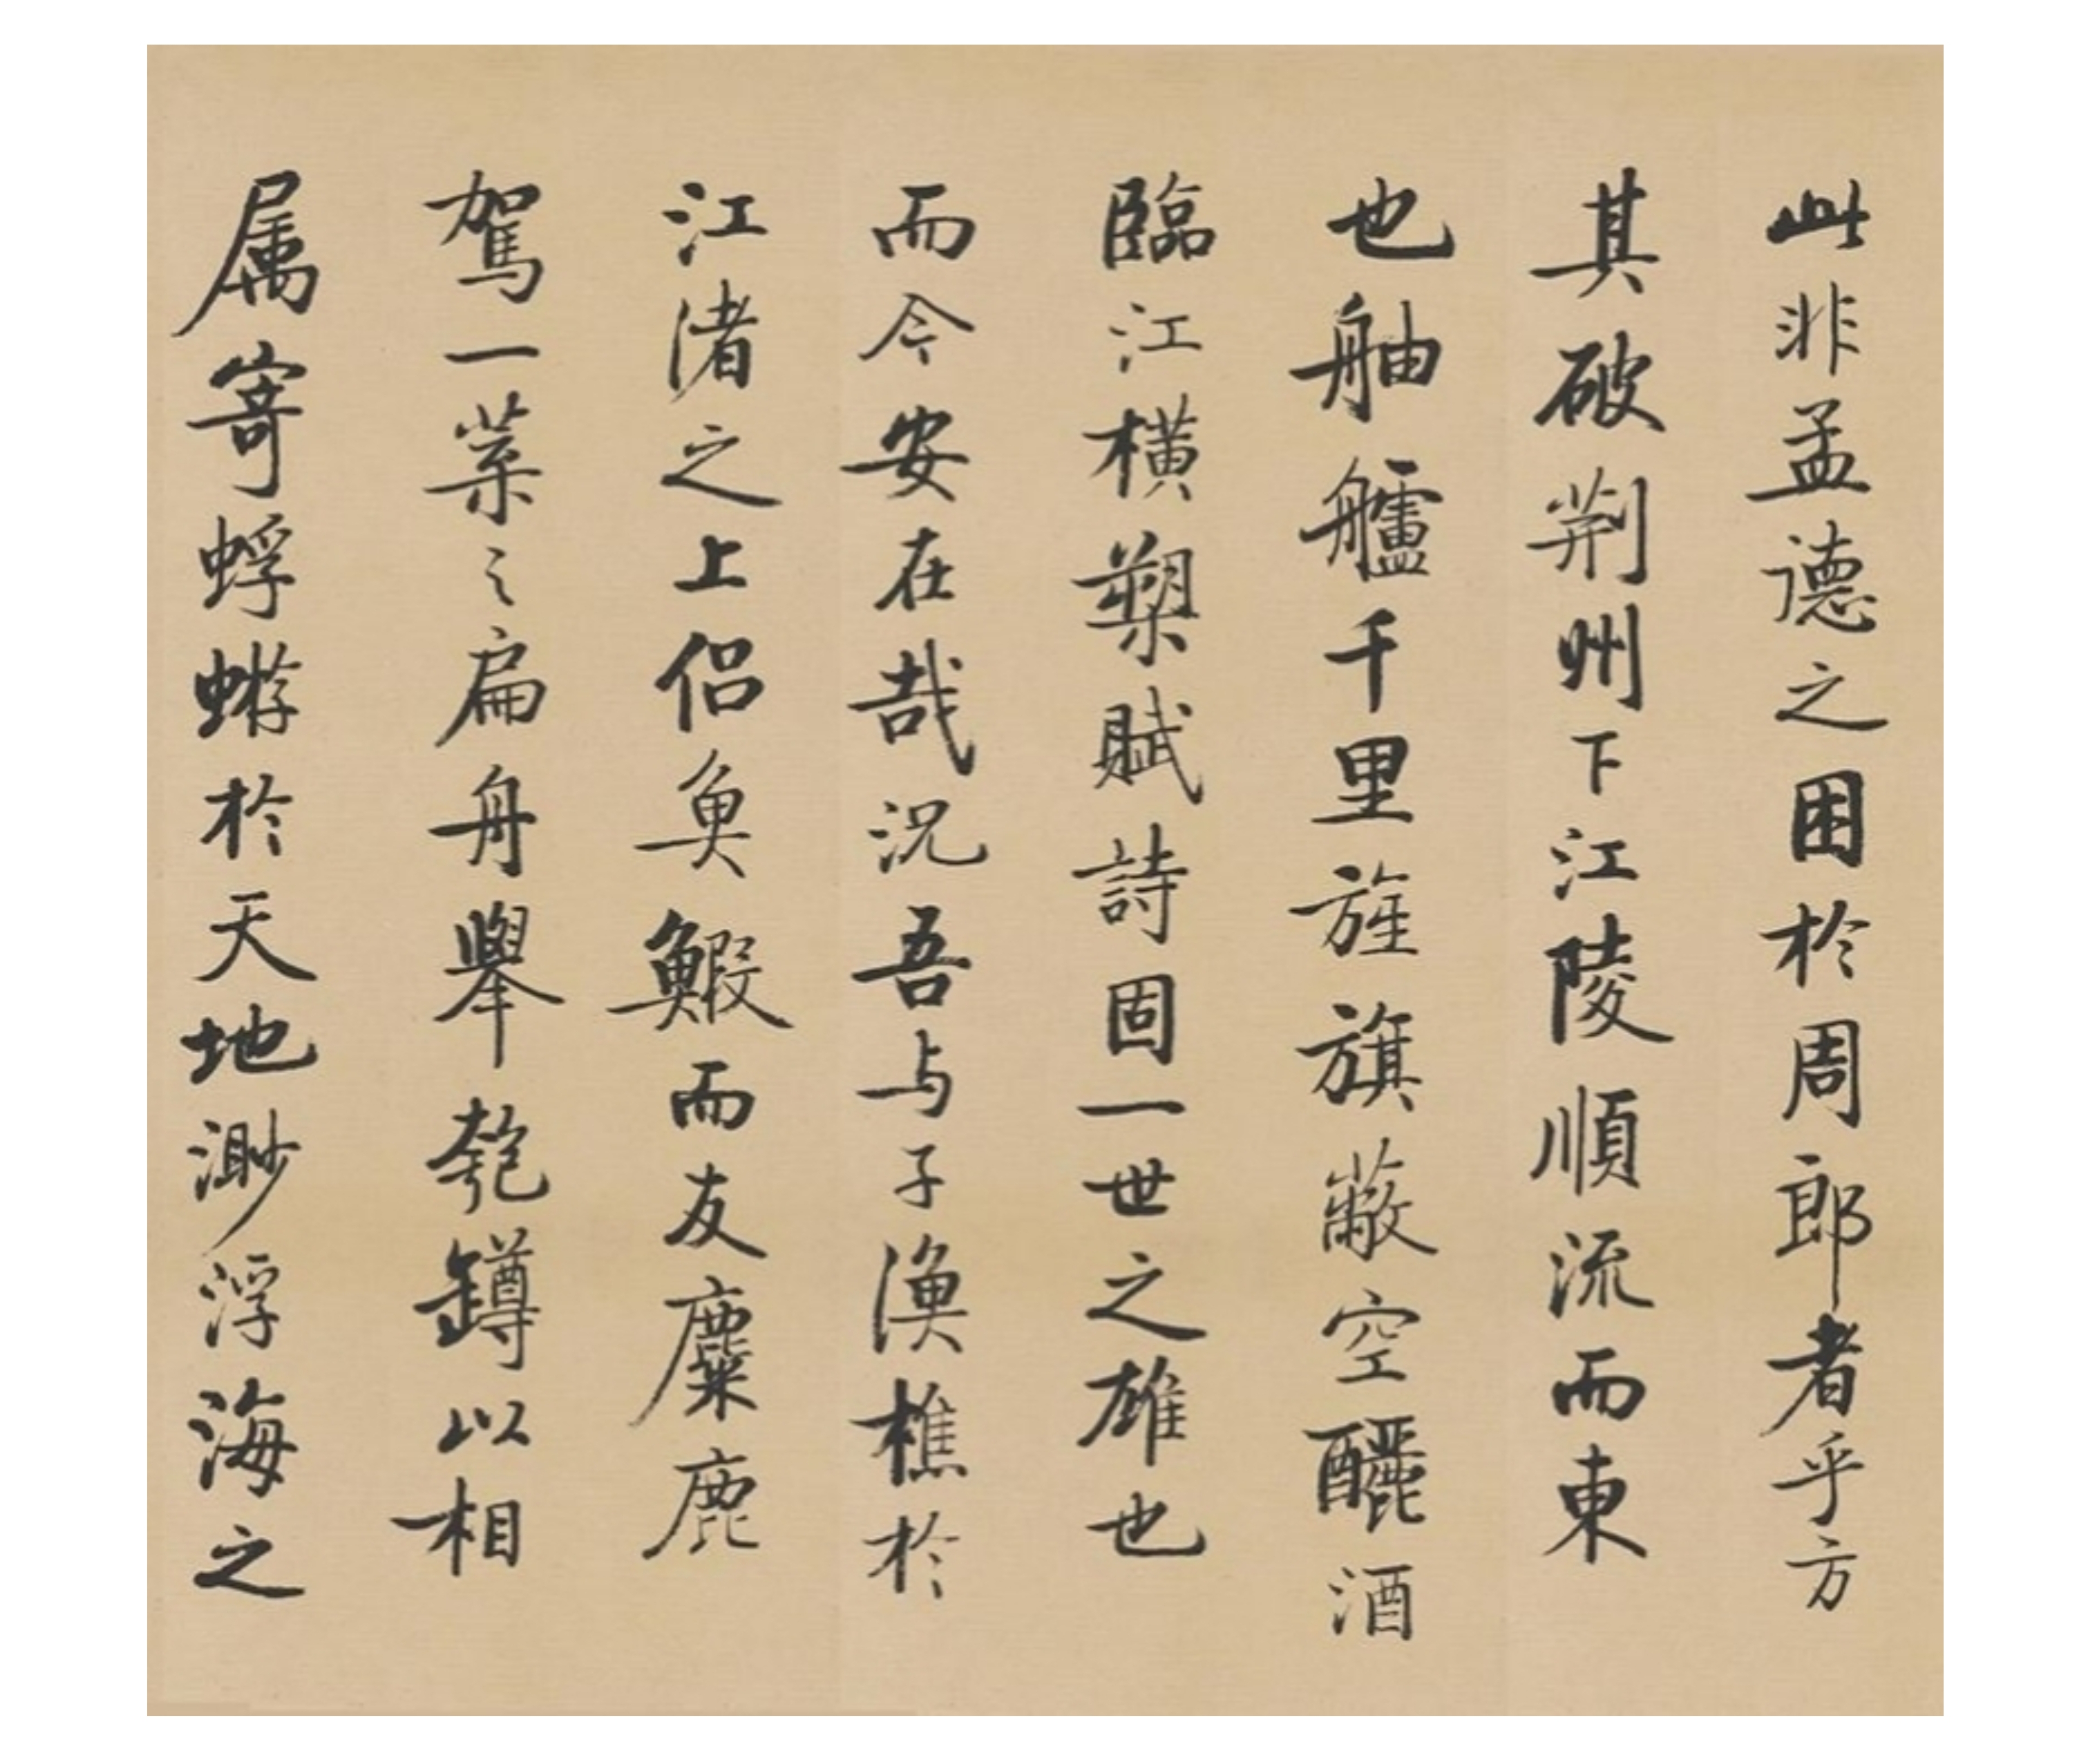 此非孟德之困於周郎者乎方
其破荆州下江陵順流而東
也舳艫千里旌旗蔽空釃酒
臨江橫槊賦詩固一世之雄也
而今安在哉況吾与子漁樵於
江渚之上侶魚鰕而友麋鹿
駕一葉之扁舟舉匏罇以相
属寄蜉蝣於天地渺浮海之